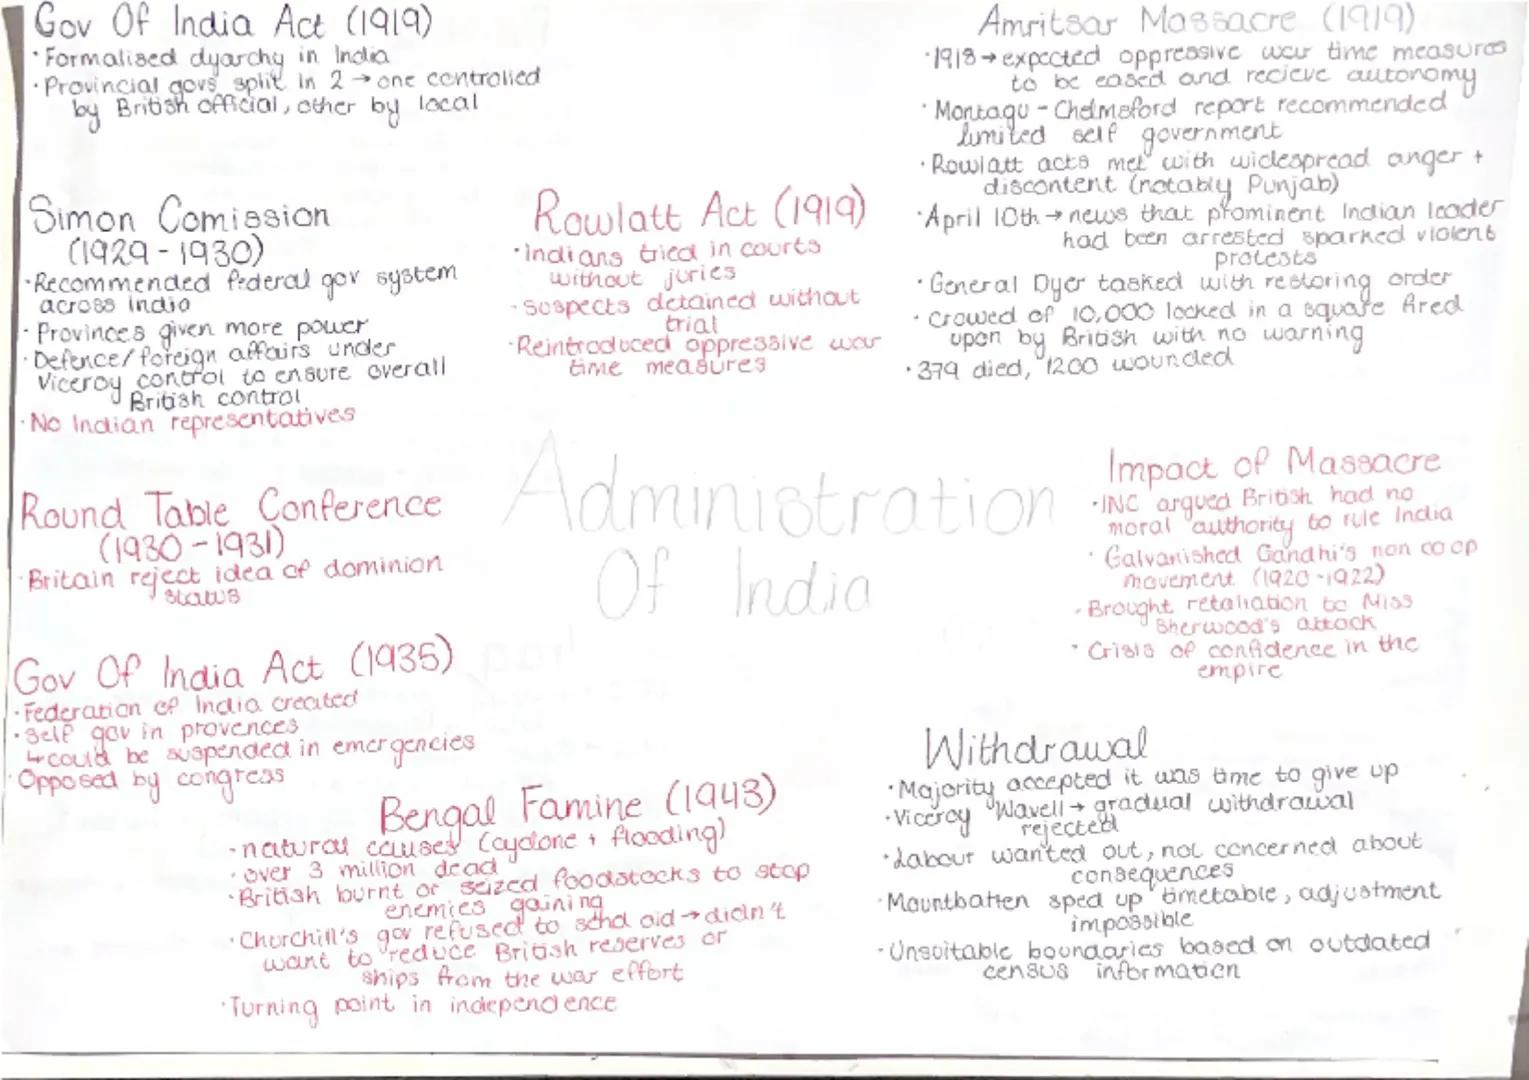 Gov Of India Act (1919)
· Formalised dyarchy in India
· Provincial govs split in 2 → one controlled
by British official, other by local
Simon Comission
(1929 - 1930)
· Recommended federal gov system
across India
· Provinces given more power
· Defence/foreign affairs under
Viceroy control to ensure overall
British control
· No Indian representatives
Round Table Conference
(1930 - 1931)
· Britain reject idea of dominion
status
Gov Of India Act (1935)
· Federation of India created
· self gov in provences
↳ could be suspended in emergencies
· Opposed by congress
Bengal Famine (1943)
· natural causes (cyclone + flooding)
· over 3 million dead
· British burnt or seized foodstocks to stop
enemies gaining
· Churchill's gov refused to send aid → didn't
want to reduce British reserves or
ships from the war effort
· Turning point in independence
Rowlatt Act (1919)
· Indians tried in courts
without juries
· suspects detained without
trial
· Reintroduced oppressive war
time measures
Administration
Of India
Amritsar Massacre (1919)
· 1918 → expected oppressive war time measures
to be eased and recieve autonomy
· Montagu - Chelmsford report recommended
limited self government
· Rowlatt acts met with widespread anger +
discontent (notably Punjab)
· April 10th → news that prominent Indian leader
had been arrested sparked violent
protests
· General Dyer tasked with restoring order
· Crowed of 10,000 locked in a square fired
upon by British with no warning
· 379 died, 1200 wounded
Impact of Massacre
· INC argued British had no
moral authority to rule India
· Galvanished Gandhi's non co op
movement (1920 - 1922)
· Brought retaliation to Miss
Sherwood's attack
· Crisis of confidence in the
empire
Withdrawal
· Majority accepted it was time to give up
· Viceroy Wavell → gradual withdrawal
rejected
· Labour wanted out, not concerned about
consequences
· Mountbatten sped up timetable, adjustment
impossible
· Unsuitable boundaries based on outdated
census information